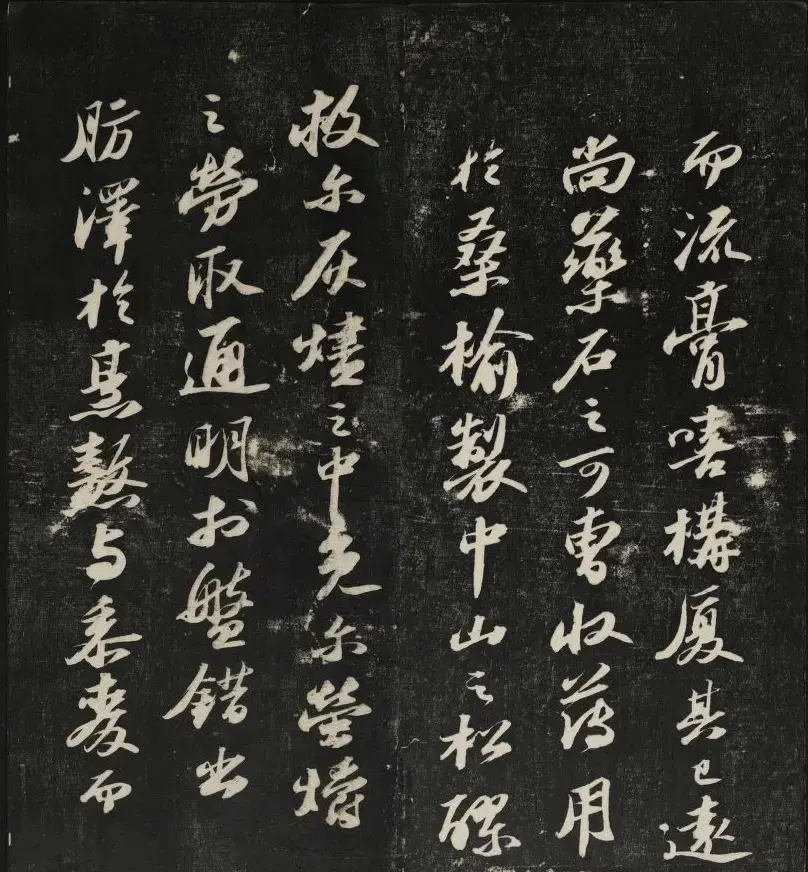 而流膏嗟構厦其已遠
尚藥石之可曹收薄用
於桑榆製中山之松醪
救尔灰燼之中免尔螢爝
之勞取通明於盤錯出
肪澤於烹熬与黍麥而